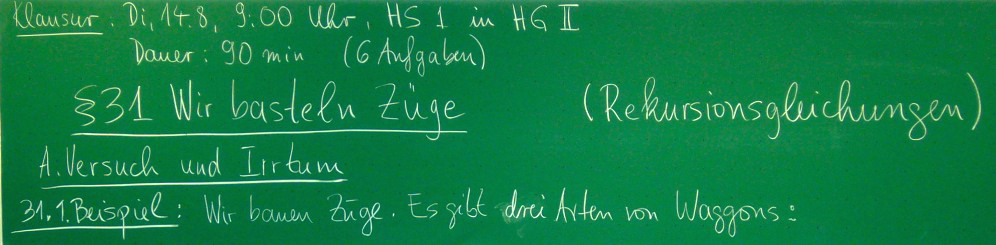 Klausur: Di, 14.8, 9:00 Uhr, HS 1 in HG II
Dauer: 90 min (6 Aufgaben)
§31 Wir basteln Züge (Rekursionsgleichungen)
A. Versuch und Irrtum
31.1. Beispiel: Wir bauen Züge. Es gibt drei Arten von Waggons: